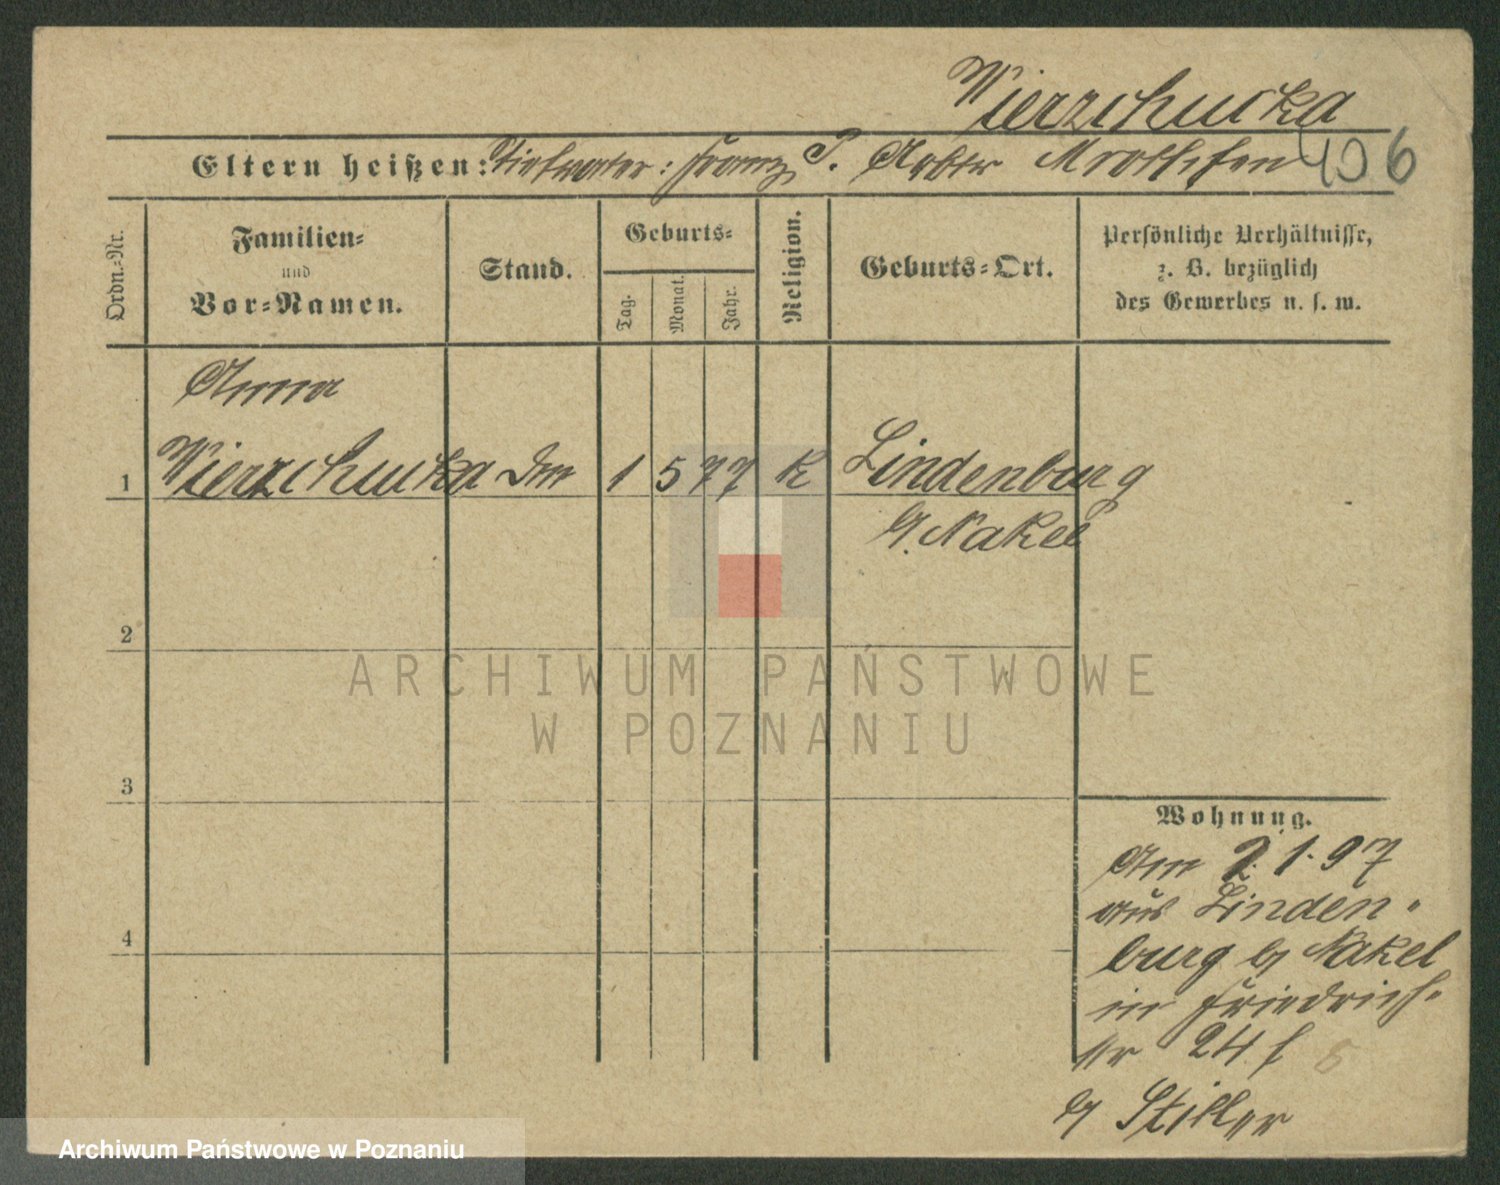 Wierzchucka
Eltern heißen: Stiefvater: Franz P. Arbtr Mrotschen 406
Ordn.-Nr.
Familien-
und
Vor-Namen.
Stand.
Geburts-
Tag.
Monat.
Jahr.
Religion.
Geburts-Ort.
Persönliche Verhältnisse,
z. B. bezüglich
des Gewerbes u. s. w.
Anna
1 Wierzchucka 1 5 77 K Lindenburg
b/ Nakel
2
3
4
Wohnung.
Am 2.1.97
aus Linden-
burg b/ Nakel
in Friedrich-
str 24 f
b/ Stiller
ARCHIWUM PAŃSTWOWE
W POZNANIU
Archiwum Państwowe w Poznaniu